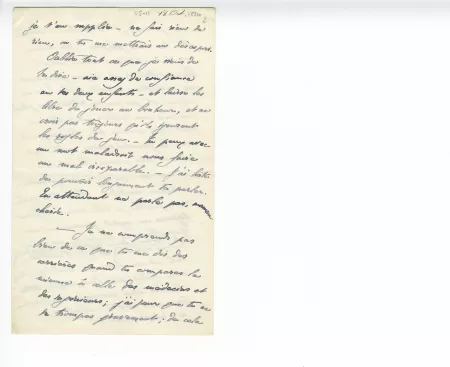 18 Oct. 2
je t'en supplie - ne fais rien de
rien, ou tu me mettrais au désespoir.
Oublie tout ce que je viens de
te dire - aie assez de confiance
en tes deux enfants - et laisse les
libre de jouer au bonheur, et ne
crois pas toujours qu'ils ignorent
les règles du jeu. - Tu peux avec
un mot maladroit nous faire
un mal irréparable. - J'ai hâte
de pouvoir longuement te parler.
En attendant ne parle pas, maman
chérie.
- Je ne comprends pas
bien de ce que tu me dis des
carrières quand tu compares la
mienne à celle des médecins et
des ingénieurs; j'ai peur que tu ne
te trompes gravement; de cela